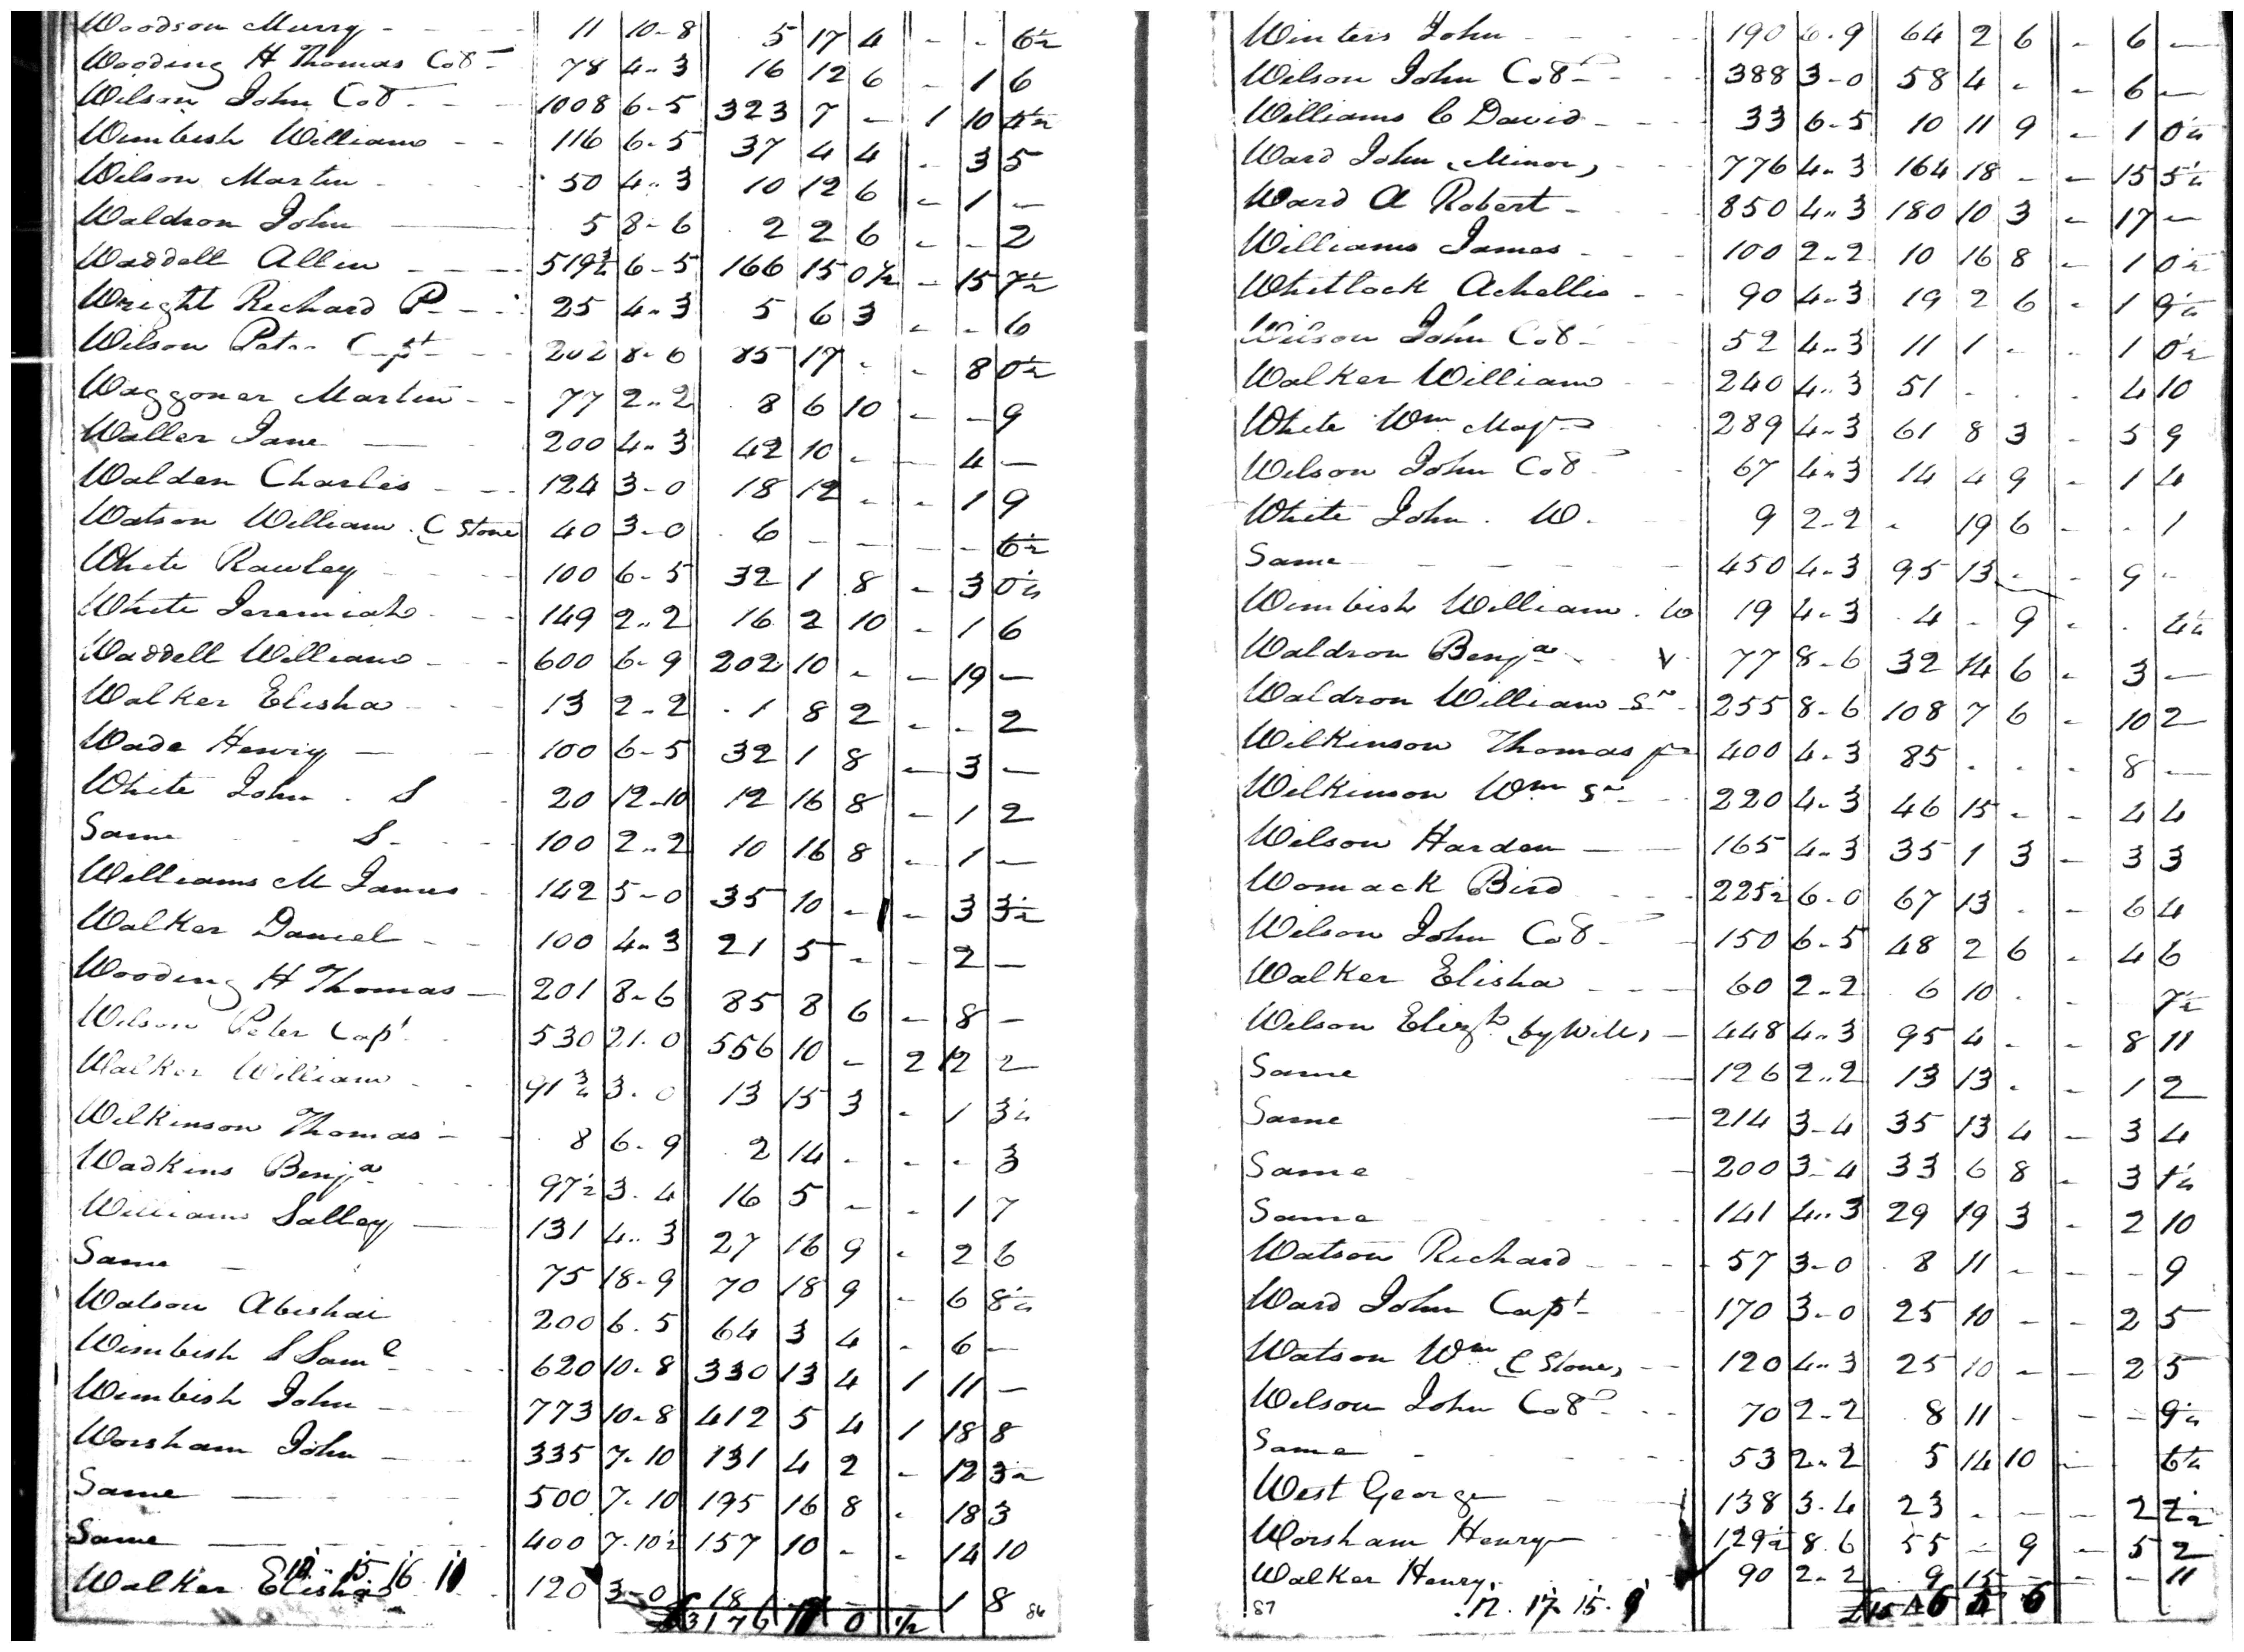 Woodson Murry - 11 10-8 5 17 4 - - 6½
Wooding H Thomas Colo 78 4..3 16 12 6 - 1 6
Wilson John Colo - 1008 6-5 323 7 - 1 10 4½
Wimbish William - - 116 6-5 37 4 4 - 3 5
Wilson Martin - 50 4..3 10 12 6 - 1 -
Waldron John - 5 8-6 2 2 6 - - 2
Waddell Allen - - - 519½ 6-5 166 15 0½ - 15 7½
Wright Richard P - - 25 4..3 5 6 3 - - 6
Wilson Peter Capt - 202 8-6 85 17 - - 8 0½
Waggoner Martin - - 77 2..2 8 6 10 - - 9
Waller Jane - 200 4..3 42 10 - - 4 -
Walden Charles - - 124 3-0 18 12 - - 1 9
Watson William (C Stone 40 3-0 6 - - - - 6½
White Rawley - 100 6-5 32 1 8 - 3 0½
White Jeremiah - 149 2..2 16 2 10 - 1 6
Waddell William - - 600 6-9 202 10 - - 19 -
Walker Elisha - 13 2..2 1 8 2 - - 2
Wade Henry - 100 6-5 32 1 8 - 3 -
White John . S 20 12-10 12 16 8 - 1 2
Same - S - 100 2..2 10 16 8 - 1 -
Williams M James - 142 5-0 35 10 - - 3 3½
Walker Daniel - - 100 4..3 21 5 - - 2 -
Wooding H Thomas - 201 8-6 85 8 6 - 8 -
Wilson Peter Capt 530 21-0 556 10 - 2 12 2
Walker William - - 91¾ 3-0 13 15 3 - 1 3½
Wilkinson Thomas - 8 6-9 2 14 - - - 3
Wadkins Benja 97½ 3-4 16 5 - - 1 7
Williams Salley - 131 4..3 27 16 9 - 2 6
Same - 75 18-9 70 18 9 - 6 8½
Watson Abishai 200 6-5 64 3 4 - 6 -
Wimbish S Saml - 620 10-8 330 13 4 1 11 -
Wimbish John - 773 10-8 412 5 4 1 18 8
Worsham John - 335 7-10 131 4 2 - 12 3½
Same - 500 7-10 195 16 8 - 18 3
Same - 400 7-10½ 157 10 - - 14 10
Walker Elisha 120 3-0 18 - - - 1 8
15 16
3176 0 ½
86
Winters John - 190 6-9 64 2 6 - 6 -
Wilson John Colo - 388 3-0 58 4 - - 6 -
Williams C David - 33 6-5 10 11 9 - 1 0½
Ward John (Minor) - 776 4..3 164 18 - - 15 5½
Ward A Robert - 850 4..3 180 10 3 - 17 -
Williams James - 100 2..2 10 16 8 - 1 0½
Whitlock Achellis - - 90 4..3 19 2 6 - 1 9½
Wilson John Colo - 52 4..3 11 1 - - 1 0½
Walker William - 240 4..3 51 - - - 4 10
White Wm Majr 289 4..3 61 8 3 - 5 9
Wilson John Colo 67 4..3 14 4 9 - 1 4
White John . W. 9 2-2 - 19 6 - - 1
Same - 450 4..3 95 13 - - 9 -
Wimbish William . W 19 4-3 4 - 9 - - 4½
Waldron Benja V 77 8-6 32 14 6 - 3 -
Waldron William Sr - 255 8-6 108 7 6 - 10 2
Wilkinson Thomas Jr 400 4-3 85 - - - 8 -
Wilkinson Wm Sr - 220 4-3 46 15 - - 4 4
Wilson Harden - 165 4..3 35 1 3 - 3 3
Womack Bird 225½ 6-0 67 13 - - 6 4
Wilson John Colo - 150 6-5 48 2 6 - 4 6
Walker Elisha - - - 60 2..2 6 10 - - 7½
Wilson Elizth (by Will) - 448 4..3 95 4 - - 8 11
Same - 126 2..2 13 13 - - 1 2
Same - 214 3-4 35 13 4 - 3 4
Same - 200 3-4 33 6 8 - 3 4½
Same 141 4..3 29 19 3 - 2 10
Watson Richard - - - 57 3-0 8 11 - - - 9
Ward John Capt - 170 3-0 25 10 - - 2 5
Watson Wm (C Stone) - 120 4..3 25 10 - - 2 5
Wilson John Colo - 70 2-2 8 11 - - - 9½
Same - 53 2..2 5 14 10 - 6½
West George 138 3-4 23 - - - 2 2½
Worsham Henry - 129½ 8.6 55 - 9 - 5 2
Walker Henry 90 2-2 9 15 - - - 11
87
.12. 17. 15. 9